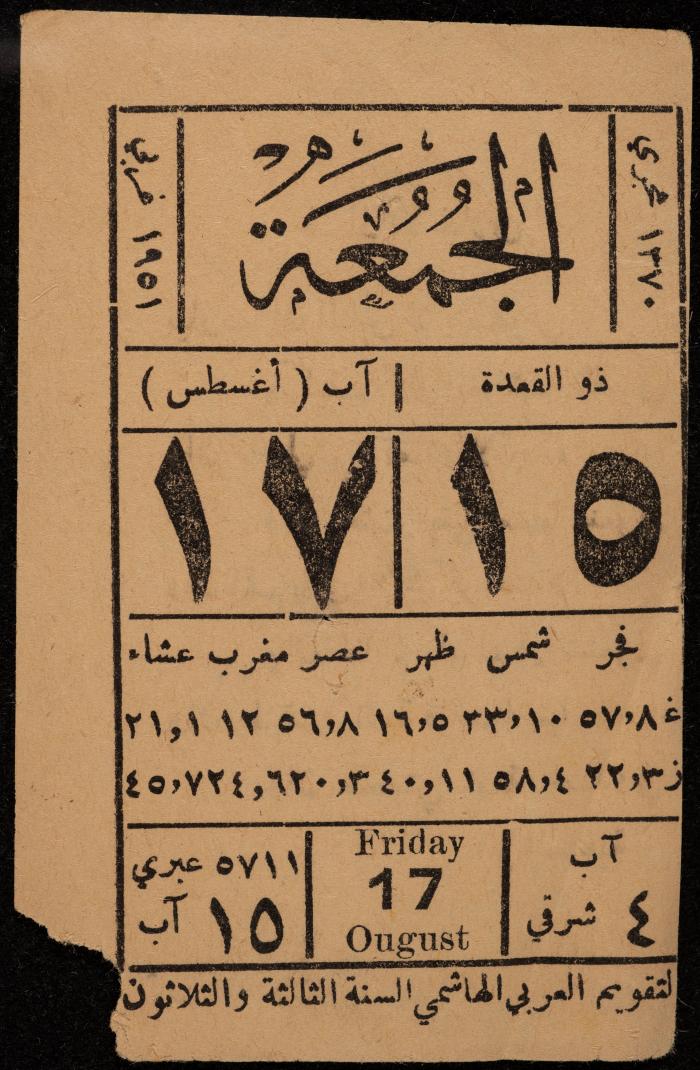 ١٣٧٠ هجري
الجمعة
١٩٥١ غربي
ذو القعدة | آب ( أغسطس )
١٥ | ١٧
فجر شمس ظهر عصر مغرب عشاء
غ ٨,٥٧ ١٠,٣٣ ٥,١٦ ٨,٥٦ ١٢ ١,٢١
ز ٣,٢٢ ٤,٥٨ ١١,٤٠ ٣,٢٠ ٦,٢٤ ٧,٤٥
آب
٤ شرقي
Friday
17
Ougust
٥٧١١ عبري
١٥ آب
لتقويم العربي الهاشمي السنة الثالثة والثلاثون